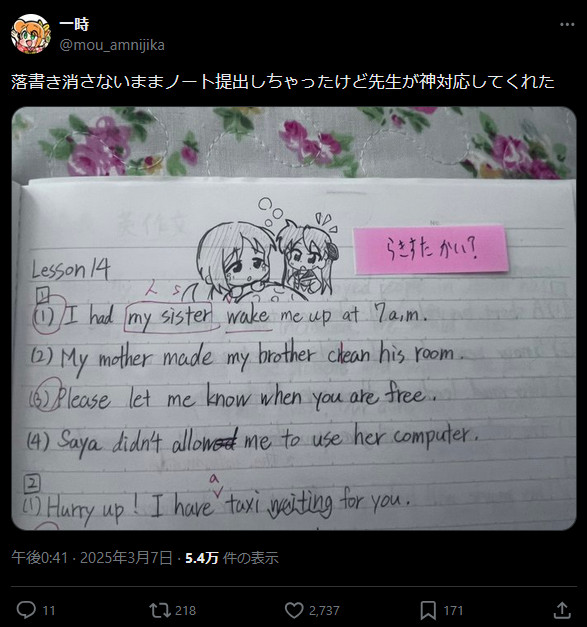 一時
@mou_amnijika
落書き消さないままノート提出しちゃったけど先生が神対応してくれた
らきすたかい?
Lesson 14
1
(1) I had my sister wake me up at 7a.m.
(2) My mother made my brother clean his room.
(3) Please let me know when you are free.
(4) Saya didn't allow me to use her computer.
2
(1) Hurry up! I have a taxi waiting for you.
午後0:41 · 2025年3月7日 · 5.4万 件の表示
11 218 2,737 171